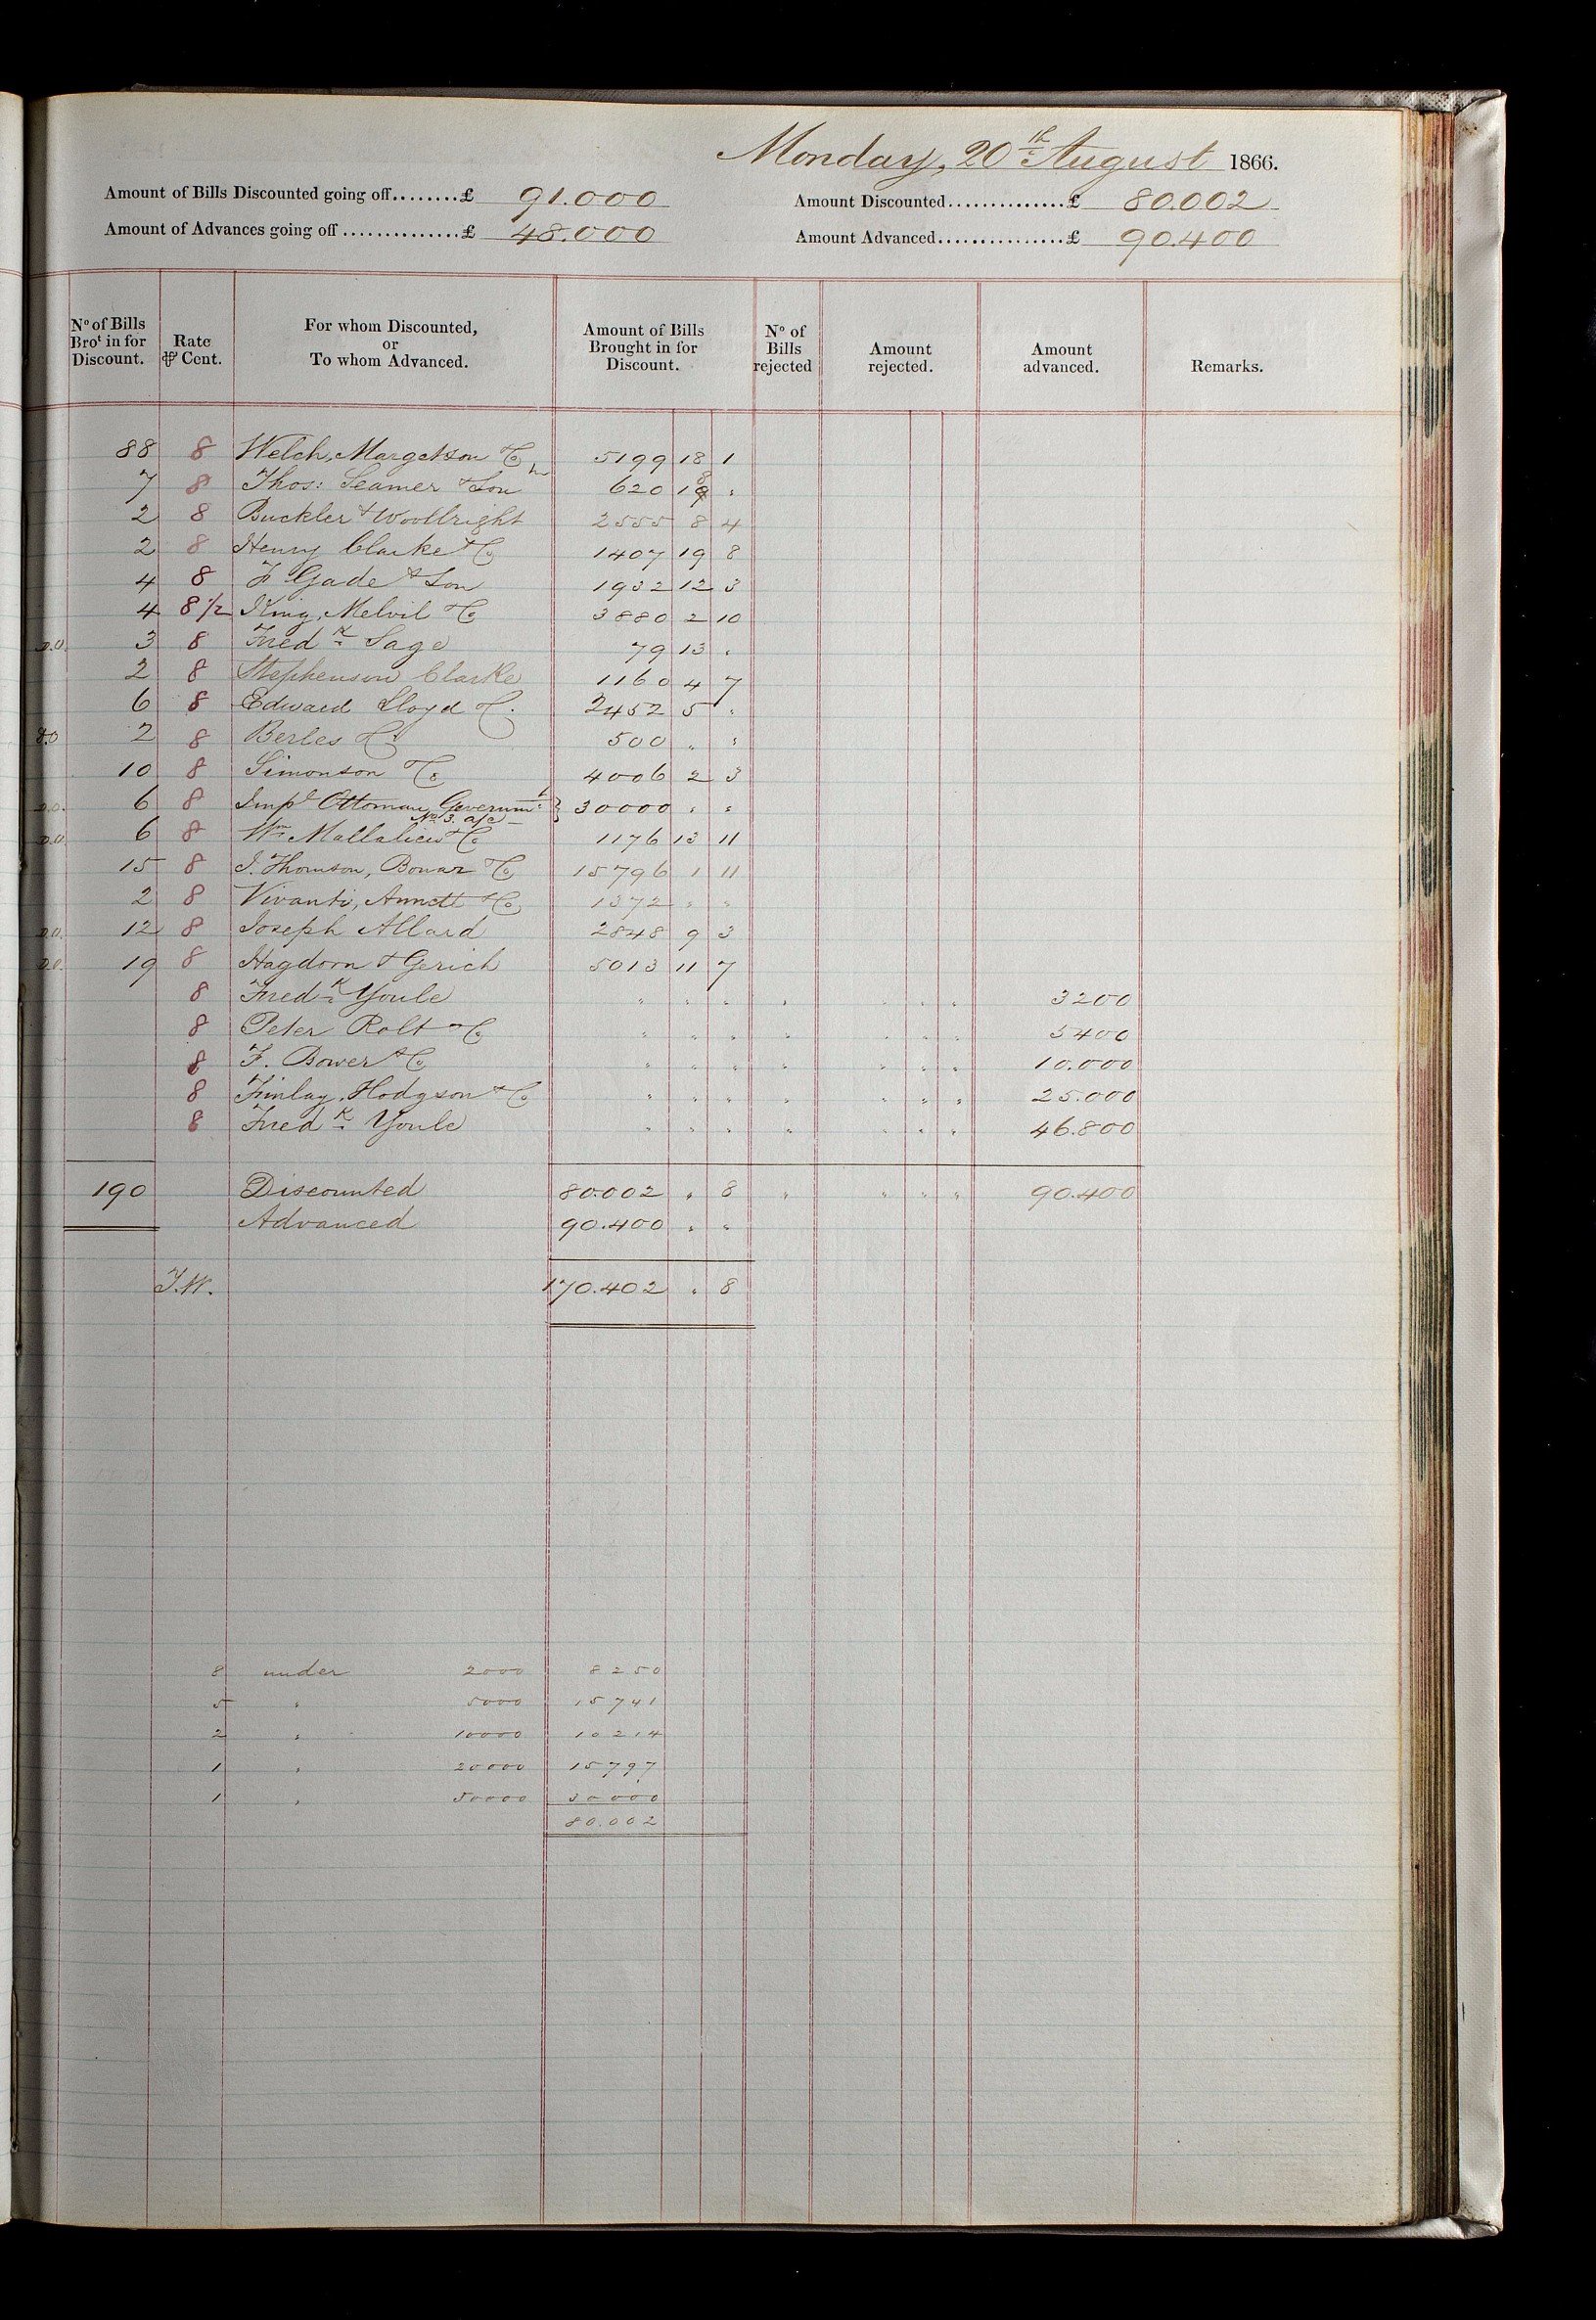 Monday, 20th August 1866.
Amount of Bills Discounted going off........£ 91.000
Amount Discounted..............£ 80.002
Amount of Advances going off..............£ 48.000
Amount Advanced...............£ 90.400
No of Bills Brot in for Discount. Rate ⅌ Cent. For whom Discounted, or To whom Advanced. Amount of Bills Brought in for Discount. No of Bills rejected Amount rejected. Amount advanced. Remarks.
88 8 Welch, Margetson & Co 5199 18 1
7 8 Thos: Seamer & Son 620 18 "
2 8 Buckler & Woollright 2555 8 4
2 8 Henry Clarke & Co 1407 19 8
4 8 F Gade & Son 1932 12 3
4 8 1/2 King, Melvil & Co 3880 2 10
D.O. 3 8 Fredk Sage 79 13 "
2 8 Stephenson Clarke 1160 4 7
6 8 Edward Lloyd & Co. 2452 5 "
2 8 Berles & Co 500 " "
10 8 Simonson & Co 4006 2 3
D.O. 6 8 Impl Ottoman Governmt } 30000 " "
No 3. a/c
D.O. 6 8 Wm Mallalieu & Co 1176 13 11
15 8 J. Thomson, Bonar & Co 15796 1 11
2 8 Vivanti, Annett & Co 1372 " "
D.O. 12 8 Joseph Allard 2848 9 3
D.O. 19 8 Hagdorn & Gerich 5013 11 7
8 Fredk Youle " " " " " " " 3200
8 Peter Rolt & Co " " " " " " " 5400
8 F. Bower & Co " " " " " " " 10.000
8 Finlay, Hodgson & Co " " " " " " " 25.000
8 Fredk Youle " " " " " " " 46.800
190 Discounted 80.002 " 8 " " " " 90.400
Advanced 90.400 " "
J.W. 170.402 " 8
8 under 2000 8250
5 " 5000 15741
2 " 10000 10214
1 " 20000 15797
1 " 50000 30000
80.002